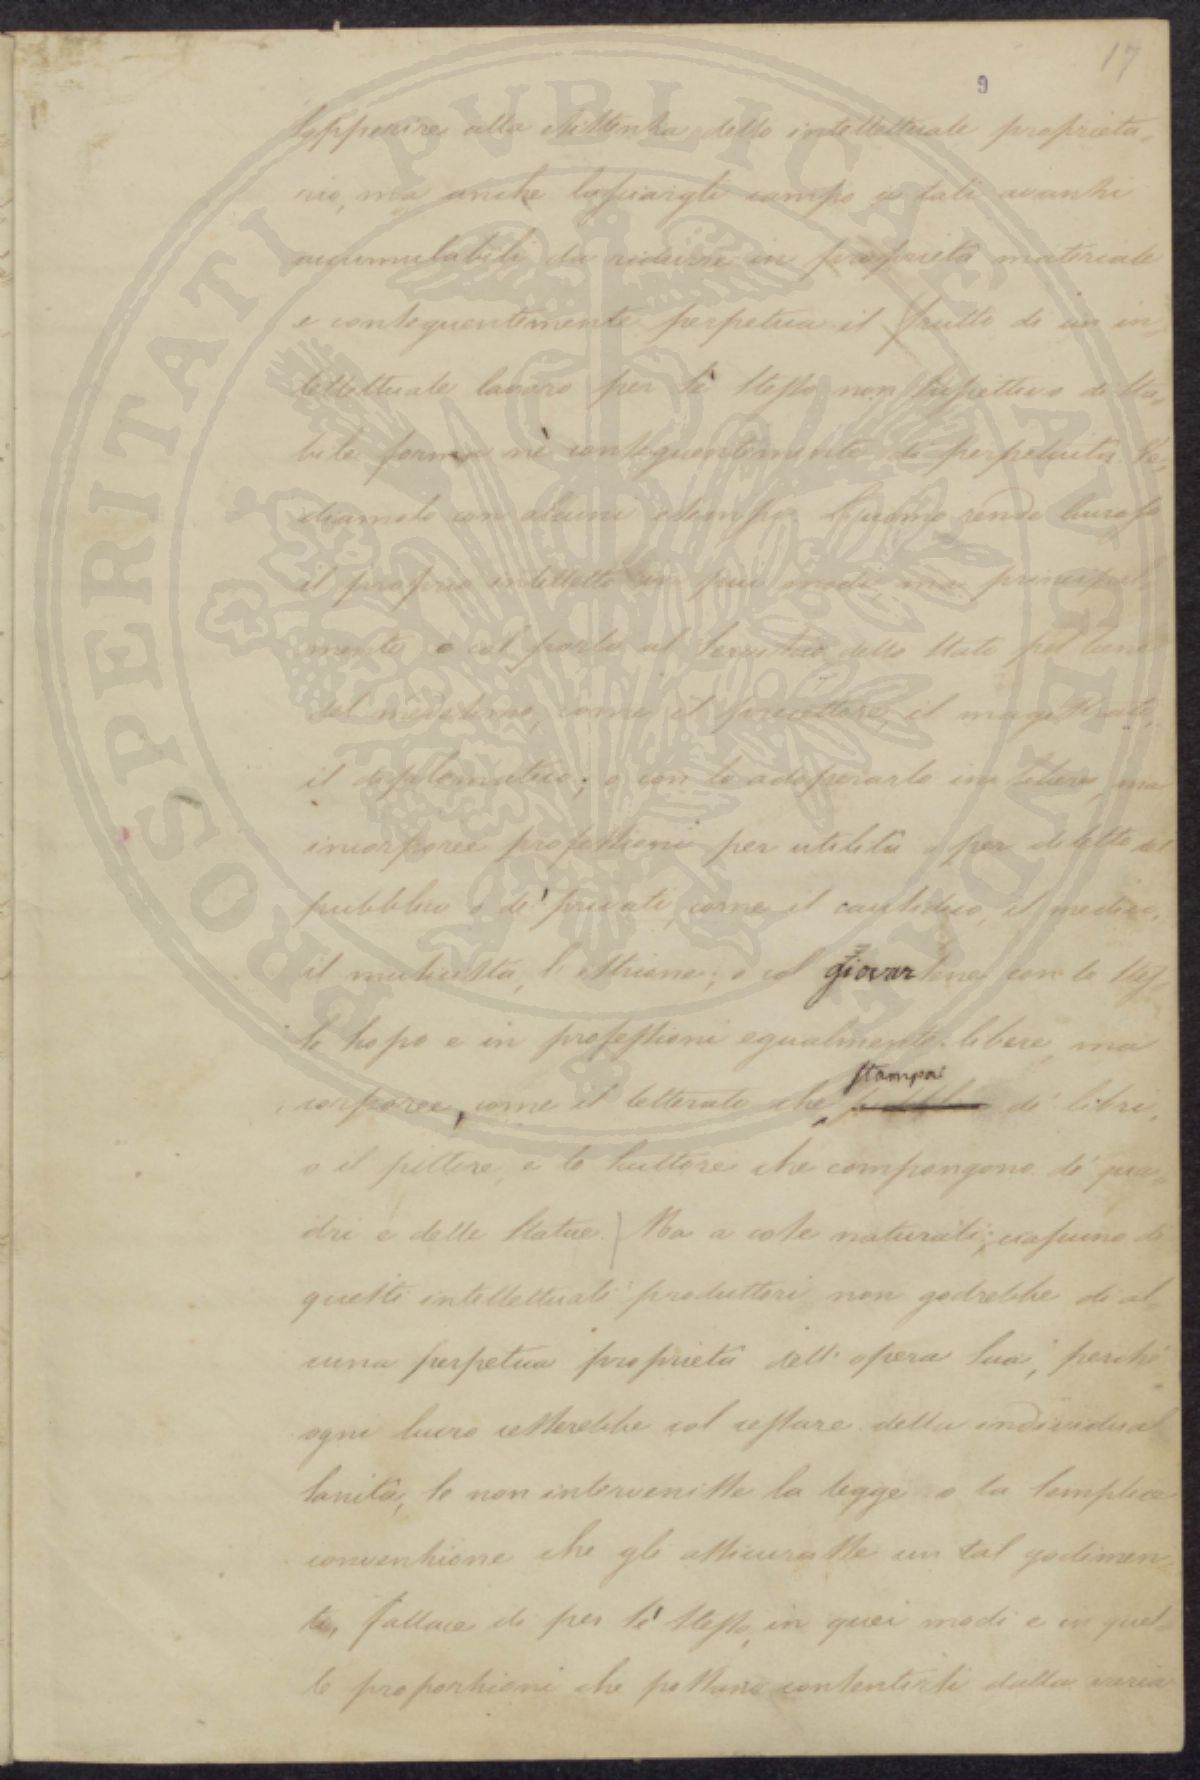 17
9
sopperire alla esistenza dello intellettuale proprieta-
rio, ma anche lasciargli campo a tali avanzi
accumulabili da ridurre in proprietà materiale
e conseguentemente perpetua il frutto di un in-
tellettuale lavoro per sè stesso non suscettivo di sta-
bile forma nè conseguentemente di perpetuità. Ve-
diamolo con alcuni esempi. L'uomo rende lucroso
il proprio intelletto in più modi, ma principal-
mente o col porlo al servizio dello Stato pel bene
del medesimo, come il precettore, il magistrato,
il diplomatico; o con lo adoperarlo in libere, ma
incorporee professioni per utilità o per diletto del
pubblico o de' privati, come il causidico, il medico,
il musicista, l'istrione; o col giovarsene con lo stes-
so scopo e in professioni egualmente libere, ma
corporee, come il letterato che stampa de' libri,
o il pittore e lo scultore che compongono de' qua-
dri e delle statue. Ma a cose naturali, ciascuno di
questi intellettuali produttori non godrebbe di al-
cuna perpetua proprietà dell'opera sua, perchè
ogni lucro cesserebbe col cessare della individual
sanità, se non intervenisse la legge o la semplice
convenzione che gli assicurasse un tal godimen-
to, fallace di per sè stesso, in quei modi e in quel-
le proporzioni che possano consentirsi dalla varia
PROSPERITATI PVBLICAE AVGENDAE